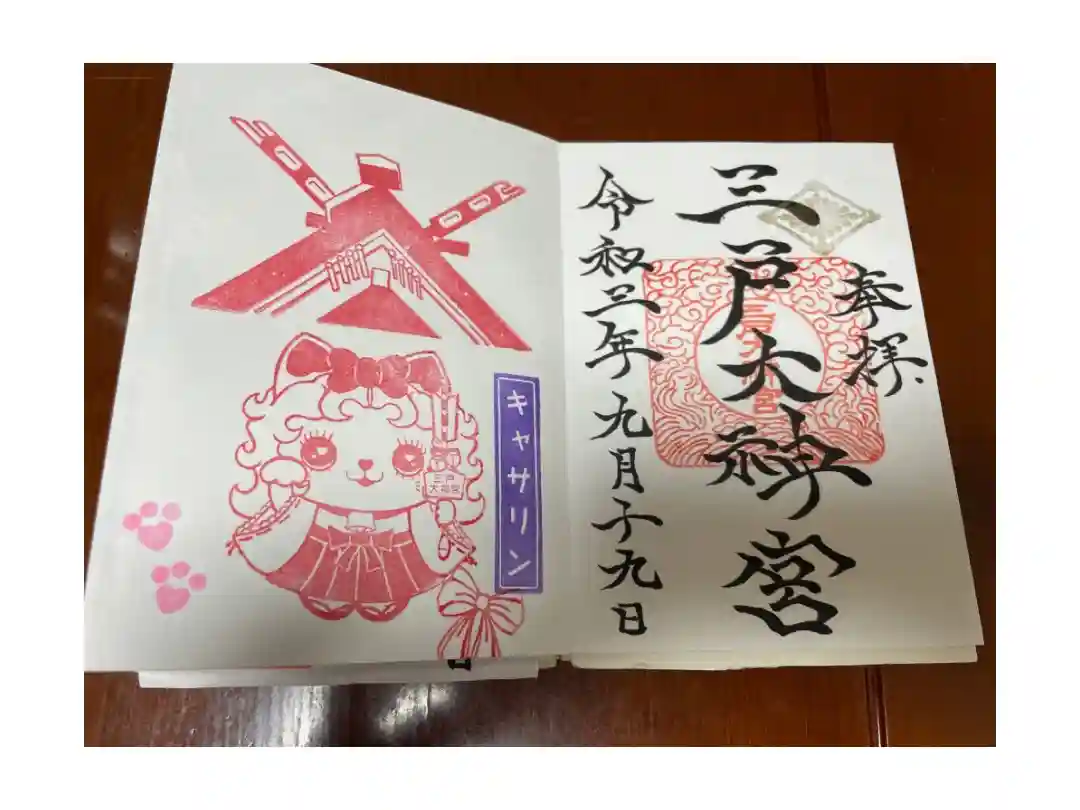 奉拝
三戸大神宮
令和三年九月十九日
キャサリン
三戸
大神宮